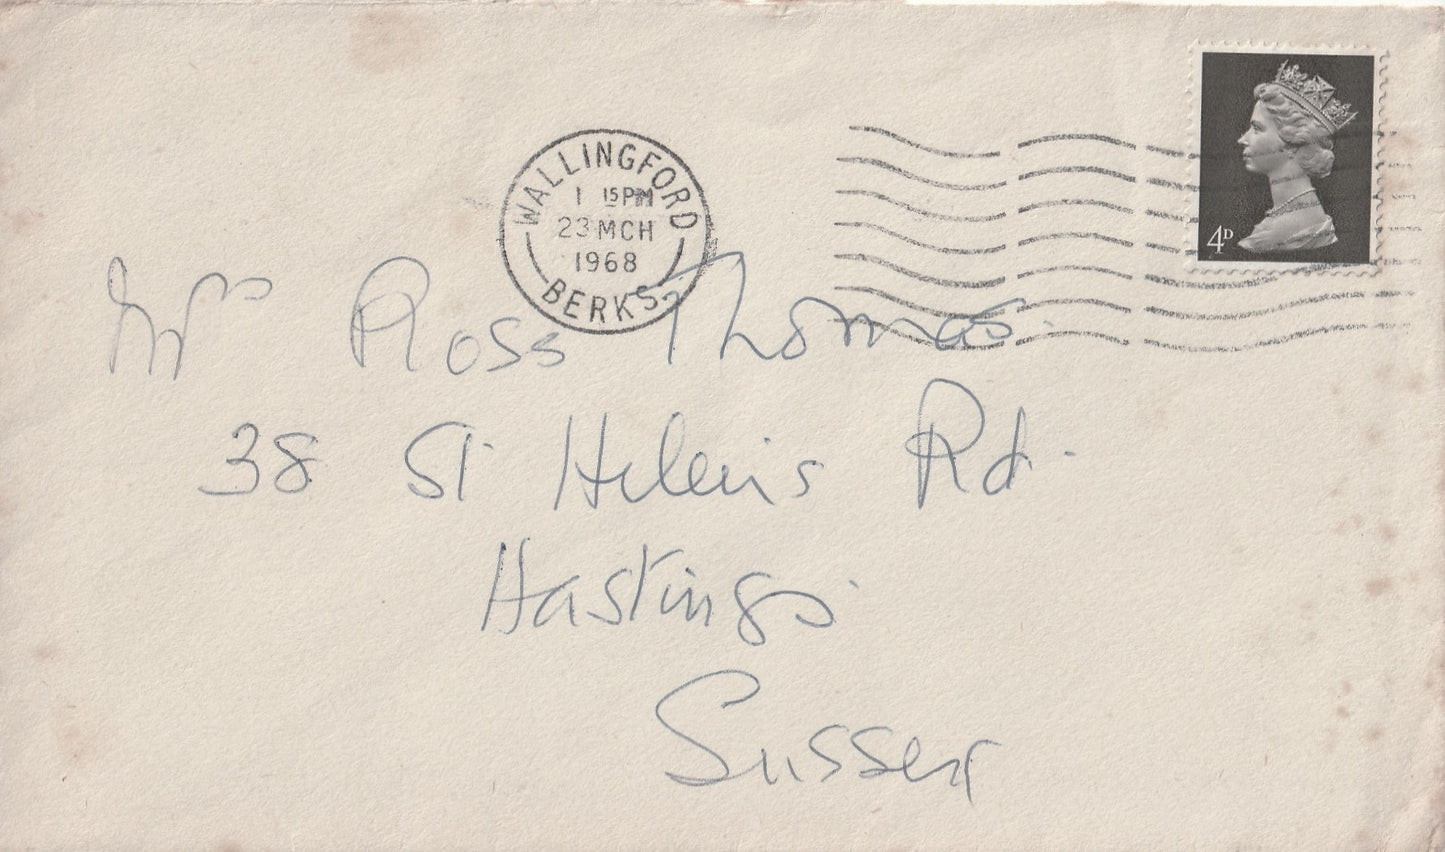 WALLINGFORD
1 15PM
23 MCH
1968
BERKS.
4D
Mrs Ross Thomas.
38 St Helens Rd.
Hastings
Sussex